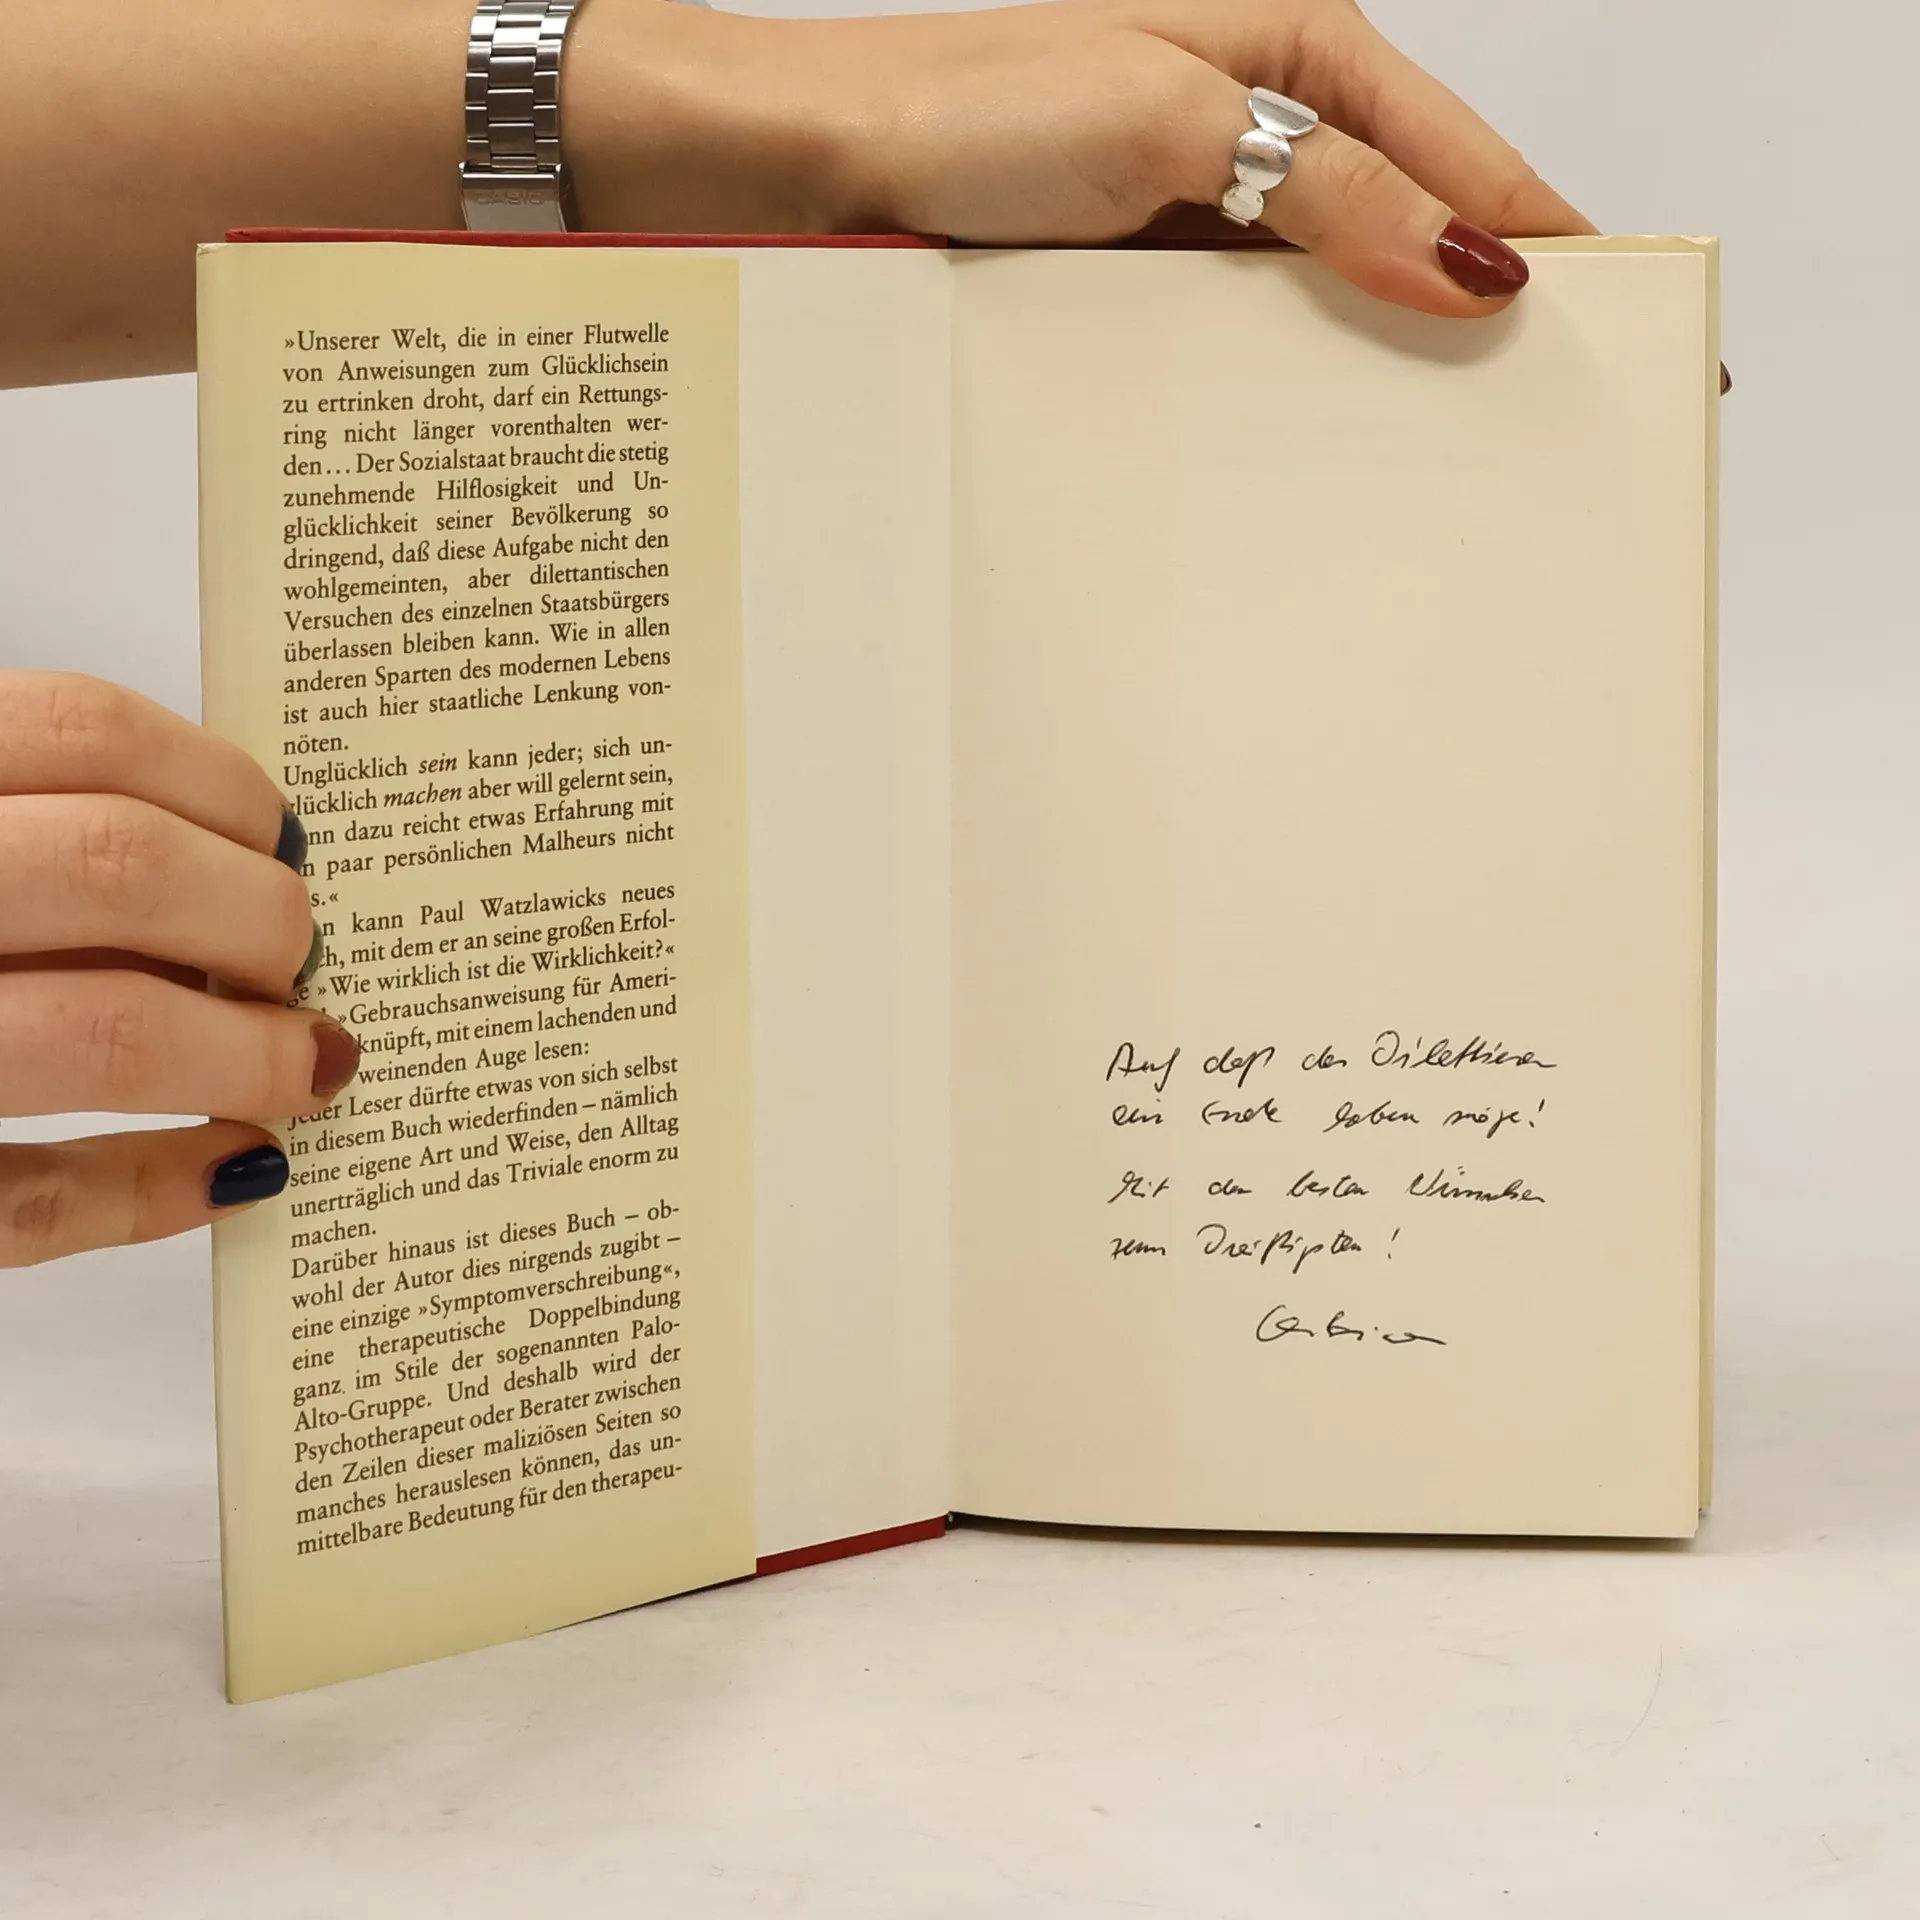 CASIO
»Unserer Welt, die in einer Flutwelle
von Anweisungen zum Glücklichsein
zu ertrinken droht, darf ein Rettungs-
ring nicht länger vorenthalten wer-
den... Der Sozialstaat braucht die stetig
zunehmende Hilflosigkeit und Un-
glücklichkeit seiner Bevölkerung so
dringend, daß diese Aufgabe nicht den
wohlgemeinten, aber dilettantischen
Versuchen des einzelnen Staatsbürgers
überlassen bleiben kann. Wie in allen
anderen Sparten des modernen Lebens
ist auch hier staatliche Lenkung von-
nöten.
Unglücklich sein kann jeder; sich un-
lücklich machen aber will gelernt sein,
nn dazu reicht etwas Erfahrung mit
n paar persönlichen Malheurs nicht
s.«
n kann Paul Watzlawicks neues
ch, mit dem er an seine großen Erfol-
ge »Wie wirklich ist die Wirklichkeit?«
»Gebrauchsanweisung für Ameri-
knüpft, mit einem lachenden und
weinenden Auge lesen:
jeder Leser dürfte etwas von sich selbst
in diesem Buch wiederfinden – nämlich
seine eigene Art und Weise, den Alltag
unerträglich und das Triviale enorm zu
machen.
Darüber hinaus ist dieses Buch – ob-
wohl der Autor dies nirgends zugibt –
eine einzige »Symptomverschreibung«,
eine therapeutische Doppelbindung
ganz im Stile der sogenannten Palo-
Alto-Gruppe. Und deshalb wird der
Psychotherapeut oder Berater zwischen
den Zeilen dieser maliziösen Seiten so
manches herauslesen können, das un-
mittelbare Bedeutung für den therapeu-
Auf daß das Dilettieren
ein Ende haben möge!
Mit den besten Wünschen
zum Dreißigsten!